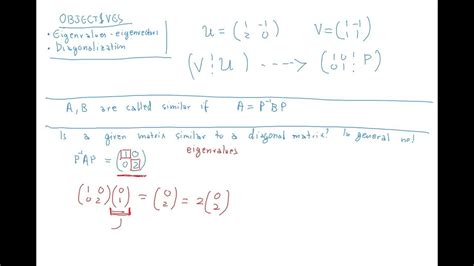 OBJECTIVES
• Eigenvalues - eigenvectors
• Diagonalization
U = (1 -1
2 0)
V = (1 -1
1 1)
(V ⋮ U) ----> (1 0 ⋮ P
0 1 ⋮)
A, B are called similar if A = P⁻¹BP
Is a given matrix similar to a diagonal matrix? In general not
P⁻¹AP = (1 0
0 2)
eigenvalues
(1 0
0 2) (0
1) = (0
2) = 2 (0
2)